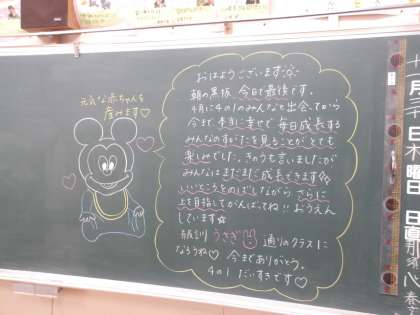 元気な赤ちゃんを
産みます♡
おはようございます
朝の黒板 今日で最後です。
4月に4の1のみんなと出会ってから
今まで本当に幸せで 毎日成長する
みんなのすがたを見ることがとても
楽しみでした。きのうも言いましたが
みんなはまだまだ成長できます☆
いいところをのばしながら、さらに
上を目指してがんばってね!!おうえん
しています☆
うさぎ 通りのクラスに
なろうね♡ 今までありがとう。
4の1 だいすきです♡
月
日
木
曜
日
日
直
那
須